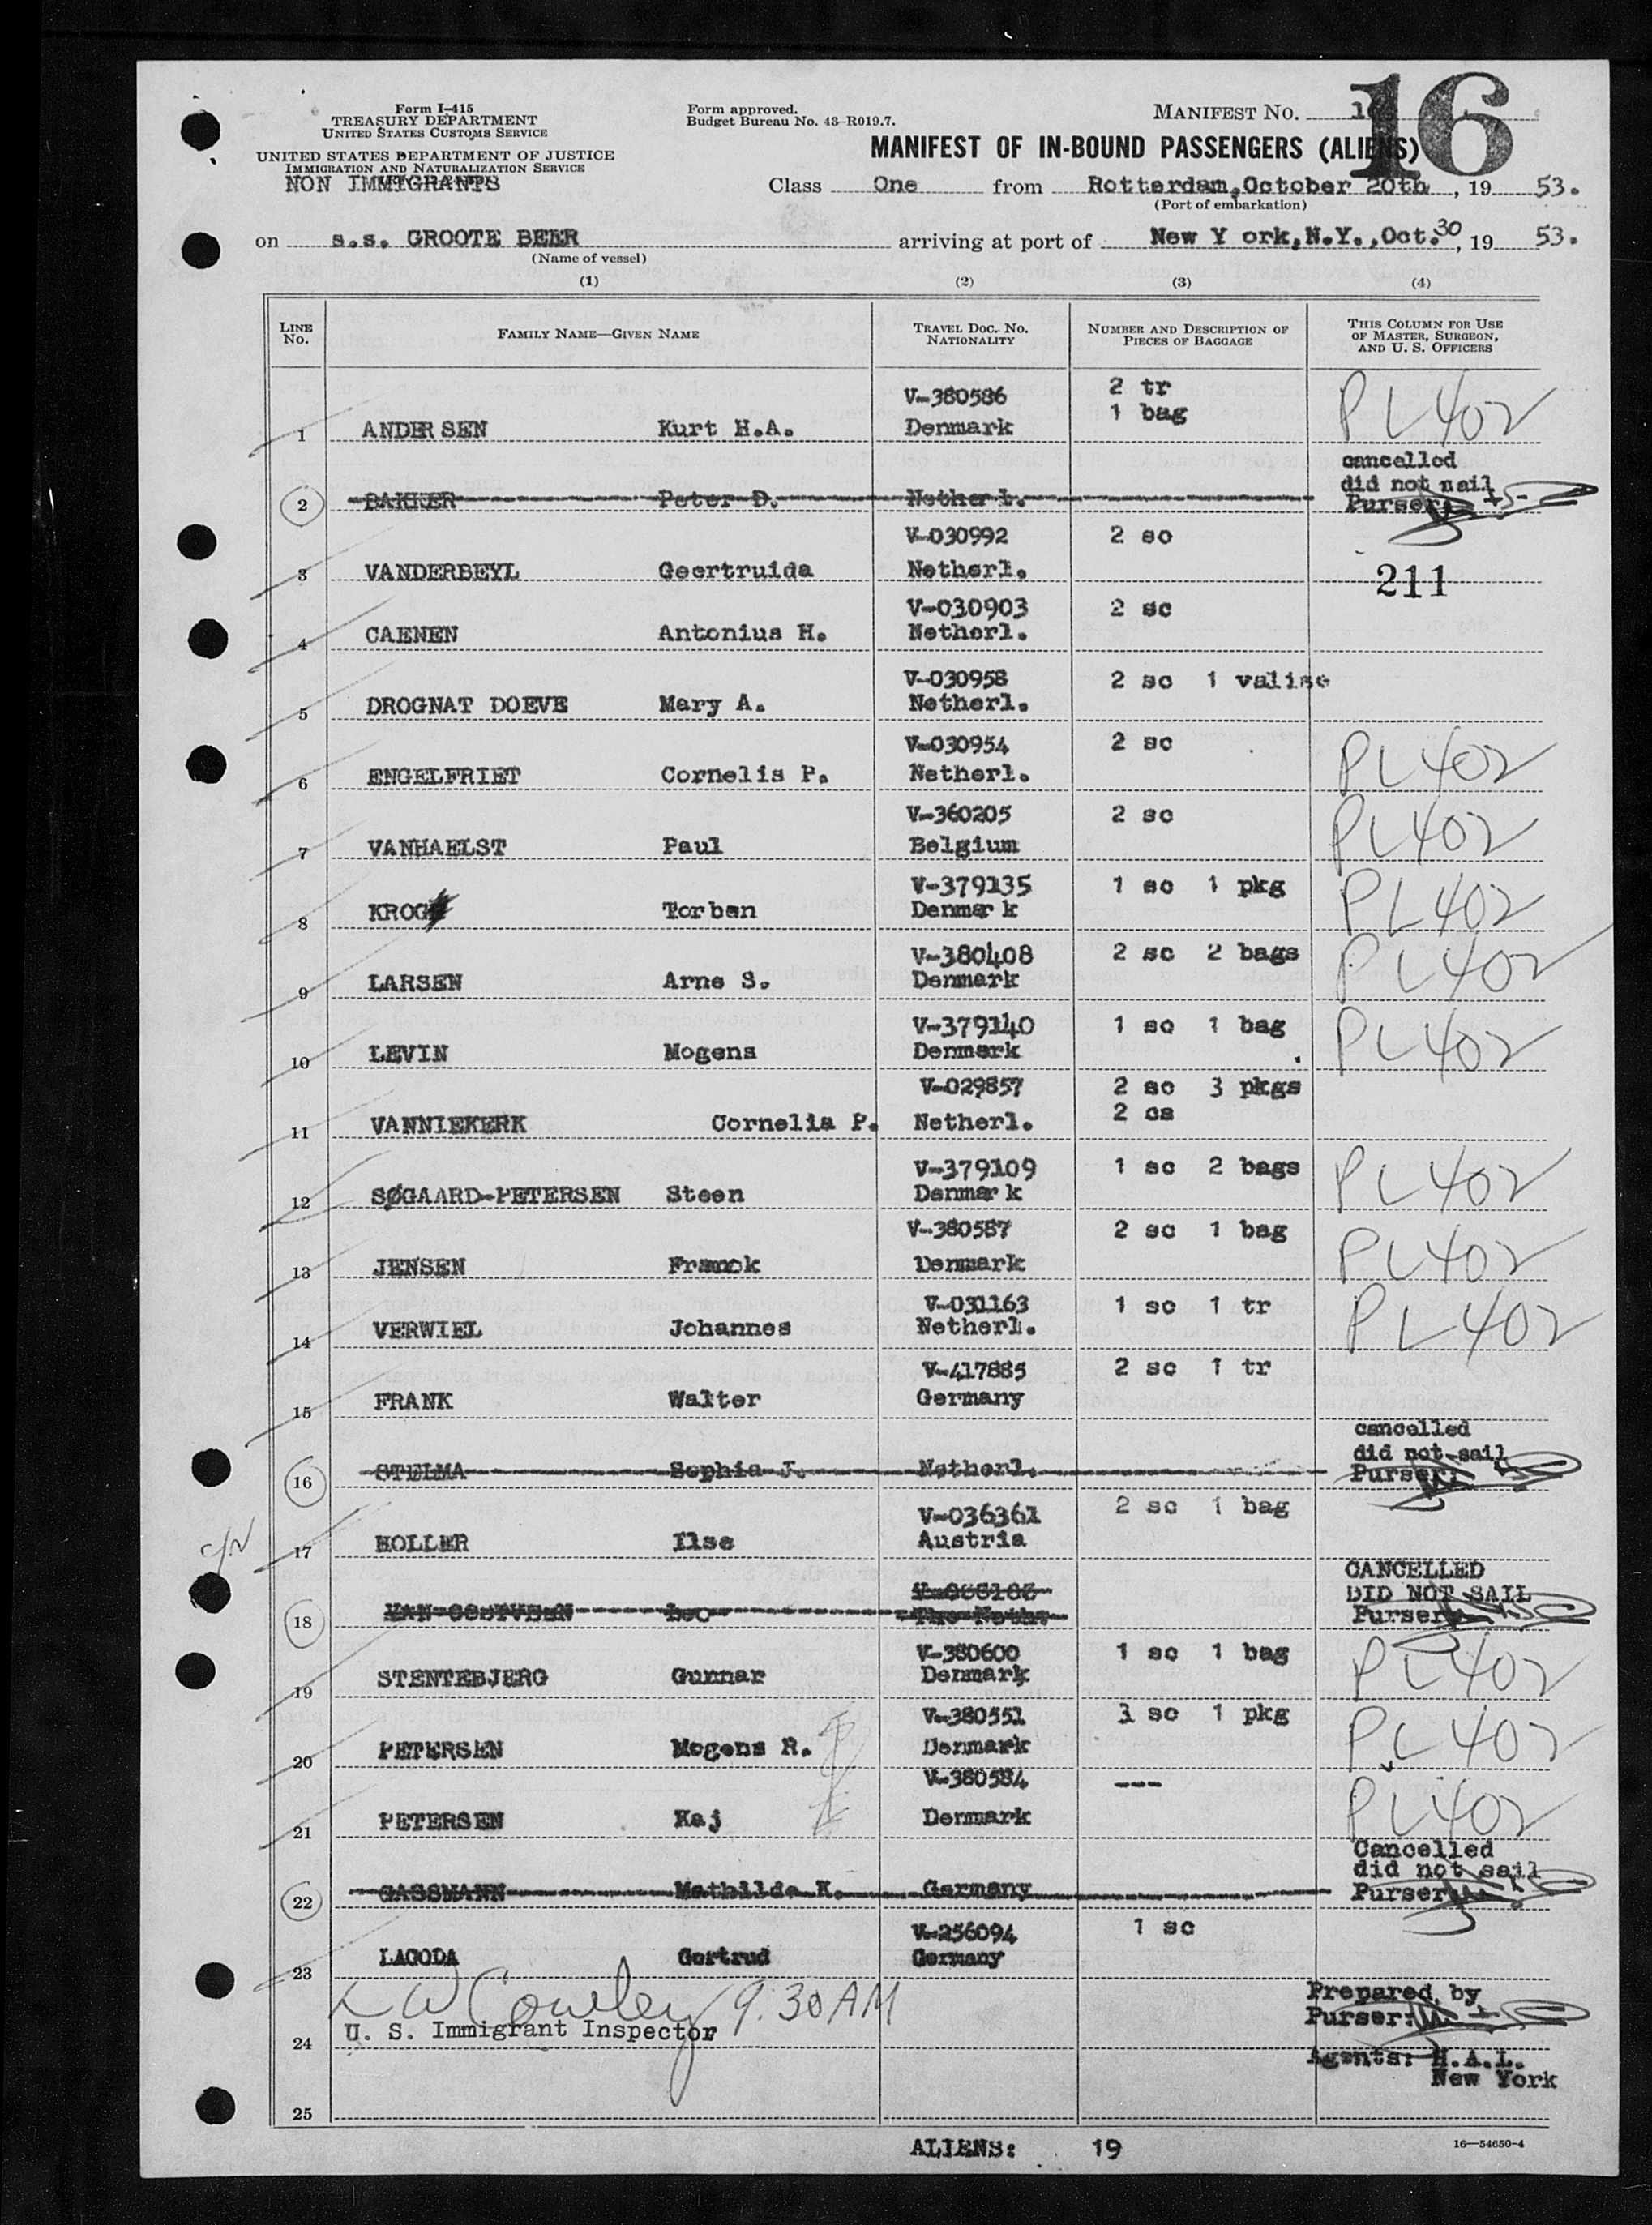 Form I-415
TREASURY DEPARTMENT
UNITED STATES CUSTOMS SERVICE
UNITED STATES DEPARTMENT OF JUSTICE
IMMIGRATION AND NATURALIZATION SERVICE
NON IMMIGRANTS
Form approved.
Budget Bureau No. 43-R019.7.
MANIFEST No. 16
MANIFEST OF IN-BOUND PASSENGERS (ALIENS)
Class One from Rotterdam,October 20th, 19 53.
(Port of embarkation)
on s.s. GROOTE BEER arriving at port of New Y ork,N.Y.,Oct.30, 19 53.
(Name of vessel)
(1) (2) (3) (4)
LINE No. FAMILY NAME—GIVEN NAME TRAVEL DOC. NO. NATIONALITY NUMBER AND DESCRIPTION OF PIECES OF BAGGAGE THIS COLUMN FOR USE OF MASTER, SURGEON, AND U. S. OFFICERS
V-380586 2 tr
1 bag
1 ANDERSEN Kurt H.A. Denmark PL 402
cancelled
did not sail
2 BAKKER Peter D. Netherl. Purser:
V-030992 2 sc
3 VANDERBEYL Geertruida Netherl. 211
V-030903 2 sc
4 CAENEN Antonius H. Netherl.
V-030958 2 sc 1 valise
5 DROGNAT DOEVE Mary A. Netherl.
V-030954 2 sc
6 ENGELFRIET Cornelis P. Netherl. PL 402
V-360205 2 sc
7 VANHAELST Paul Belgium PL 402
V-379135 1 sc 1 pkg
8 KROG Torben Denmark PL 402
V-380408 2 sc 2 bags
9 LARSEN Arne S. Denmark PL 402
V-379140 1 sc 1 bag
10 LEVIN Mogens Denmark PL 402
V-029857 2 sc 3 pkgs
2 cs
11 VANNIEKERK Cornelia P. Netherl.
V-379109 1 sc 2 bags
12 SØGAARD-PETERSEN Steen Denmark PL 402
V-380587 2 sc 1 bag
13 JENSEN Franck Denmark PL 402
V-031163 1 sc 1 tr
14 VERWIEL Johannes Netherl. PL 402
V-417885 2 sc 1 tr
15 FRANK Walter Germany
cancelled
did not sail
16 STELMA Sophia J. Netherl. Purser:
V-036361 2 sc 1 bag
17 HOLLER Ilse Austria
CANCELLED
DID NOT SAIL
18 Purser:
V-380600 1 sc 1 bag
19 STENTEBJERG Gunnar Denmark PL 402
V-380551 3 sc 1 pkg
20 PETERSEN Mogens R. Denmark PL 402
V-380584 ---
21 PETERSEN Kaj Denmark PL 402
Cancelled
did not sail
22 GASSMANN Mathilde K. Germany Purser:
V-256094 1 sc
23 LAGODA Gertrud Germany
9.30 AM
Prepared by
Purser:
24 U. S. Immigrant Inspector
Agents: H.A.L.
New York
25
ALIENS: 19
16—54650-4